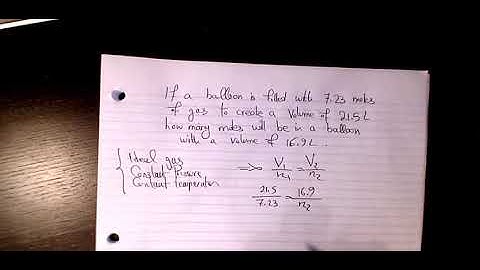 If a balloon is filled with 7.23 moles
of gas to create a volume of 21.5 L
how many moles will be in a balloon
with a volume of 16.9 L ...
{ Ideal gas => V1/n1 = V2/n2
Constant Pressure
Constant temperature 21.5/7.23 = 16.9/n2